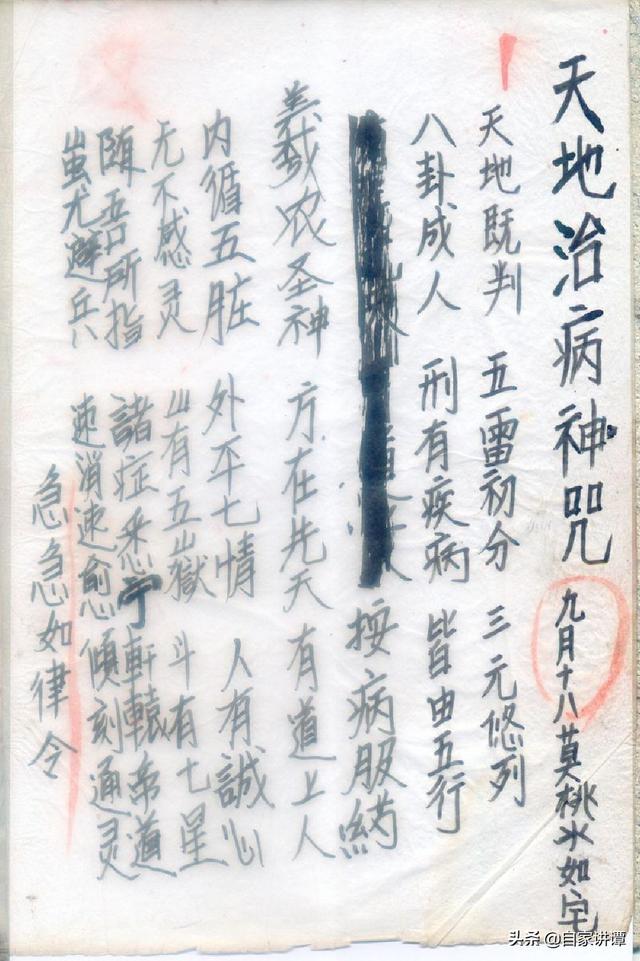 天地治病神咒 九月十八莫桃水如宅
天地既判 五雷初分 三元悠列
八卦成人 刑有疾病 皆由五行
按病服药
羲农圣神 方在先天 有道上人
内循五脏 外平七情 人有誠心
无不感灵 山有五嶽 斗有七星
随吾所指 諸症悉宁 軒轅帝道
蚩尤避兵 速消速愈 傾刻通灵
急急如律令
头条 @自家讲谭